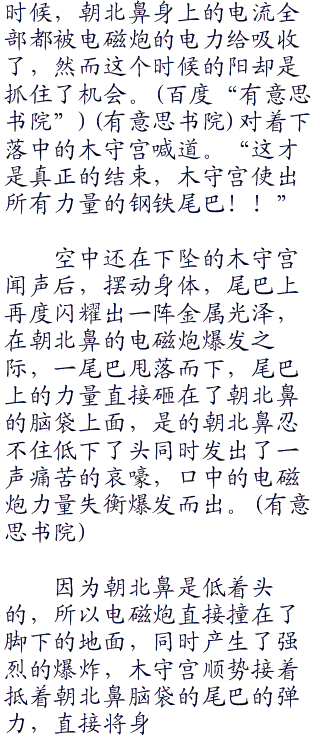 时候，朝北鼻身上的电流全
部都被电磁炮的电力给吸收
了，然而这个时候的阳却是
抓住了机会。(百度“有意思
书院”)(有意思书院)对着下
落中的木守宫喊道。“这才
是真正的结束，木守宫使出
所有力量的钢铁尾巴！！”
空中还在下坠的木守宫
闻声后，摆动身体，尾巴上
再度闪耀出一阵金属光泽，
在朝北鼻的电磁炮爆发之
际，一尾巴甩落而下，尾巴
上的力量直接砸在了朝北鼻
的脑袋上面，是的朝北鼻忍
不住低下了头同时发出了一
声痛苦的哀嚎，口中的电磁
炮力量失衡爆发而出。(有意
思书院)
因为朝北鼻是低着头
的，所以电磁炮直接撞在了
脚下的地面，同时产生了强
烈的爆炸，木守宫顺势接着
抵着朝北鼻脑袋的尾巴的弹
力，直接将身